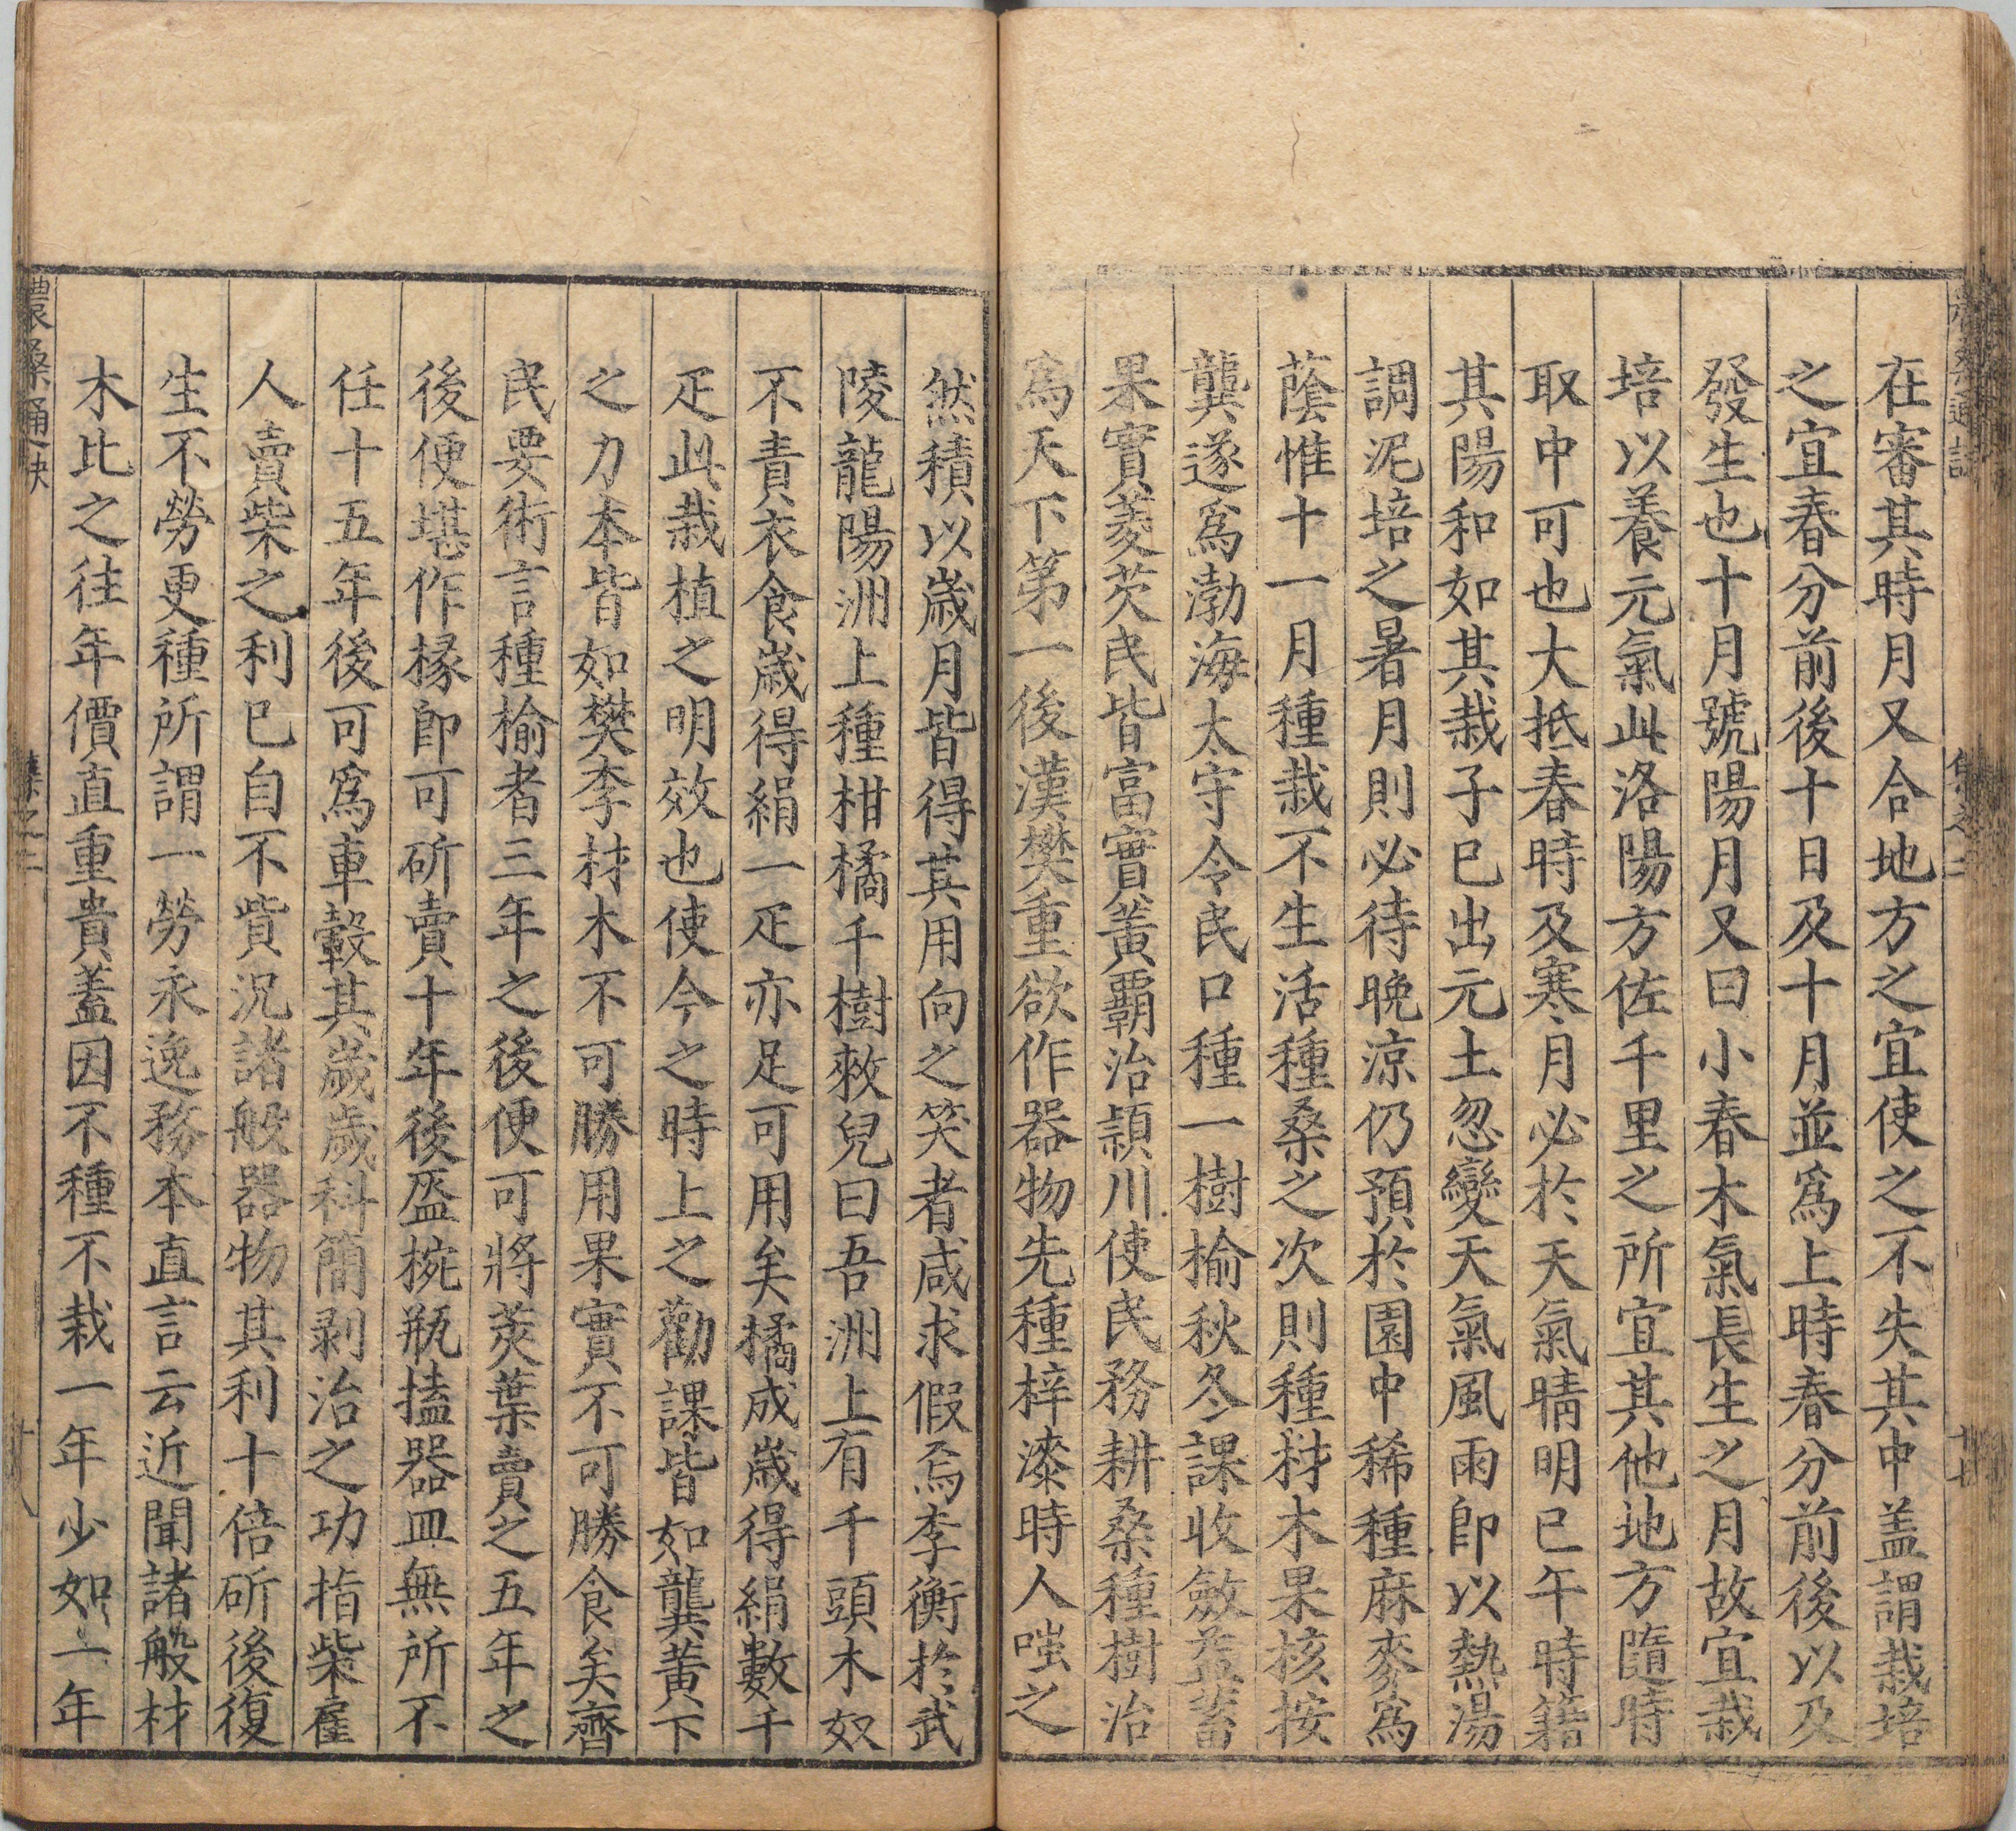 在審其時月又合地方之宜使之不失其中盖謂栽培
之宜春分前後十日及十月並爲上時春分前後以及
發生也十月號陽月又曰小春木氣長生之月故宜栽
培以養元氣此洛陽方佐千里之所宜其他地方隨時
取中可也大抵春時及寒月必於天氣晴明巳午時籍
其陽和如其栽子已出元土忽變天氣風雨即以熱湯
調泥培之暑月則必待晚涼仍預於園中稀種麻麥爲
蔭惟十一月種栽不生活種桑之次則種材木果核按
龔遂爲渤海太守令民口種一樹榆秋冬課收斂益蓄
果實菱芡民皆富實黃霸治潁川使民務耕桑種樹治
爲天下第一後漢樊重欲作器物先種梓漆時人嗤之
然積以歲月皆得其用向之笑者咸求假焉李衡於武
陵龍陽洲上種柑橘千樹敕兒曰吾洲上有千頭木奴
不責衣食歲得絹一疋亦足可用矣橘成歲得絹數千
疋此栽植之明效也使今之時上之勸課皆如龔黃下
之力本皆如樊李材木不可勝用果實不可勝食矣齊
民要術言種榆者三年之後便可將莢葉賣之五年之
後便堪作椽即可斫賣十年後盌椀瓶榼器皿無所不
任十五年後可爲車轂其歲歲科簡剥治之功指柴雇
人賣柴之利已自不貲況諸般器物其利十倍斫後復
生不勞更種所謂一勞永逸務本直言云近聞諸般材
木比之往年價直重貴蓋因不種不栽一年少如一年
農桑通訣
集之二
十八